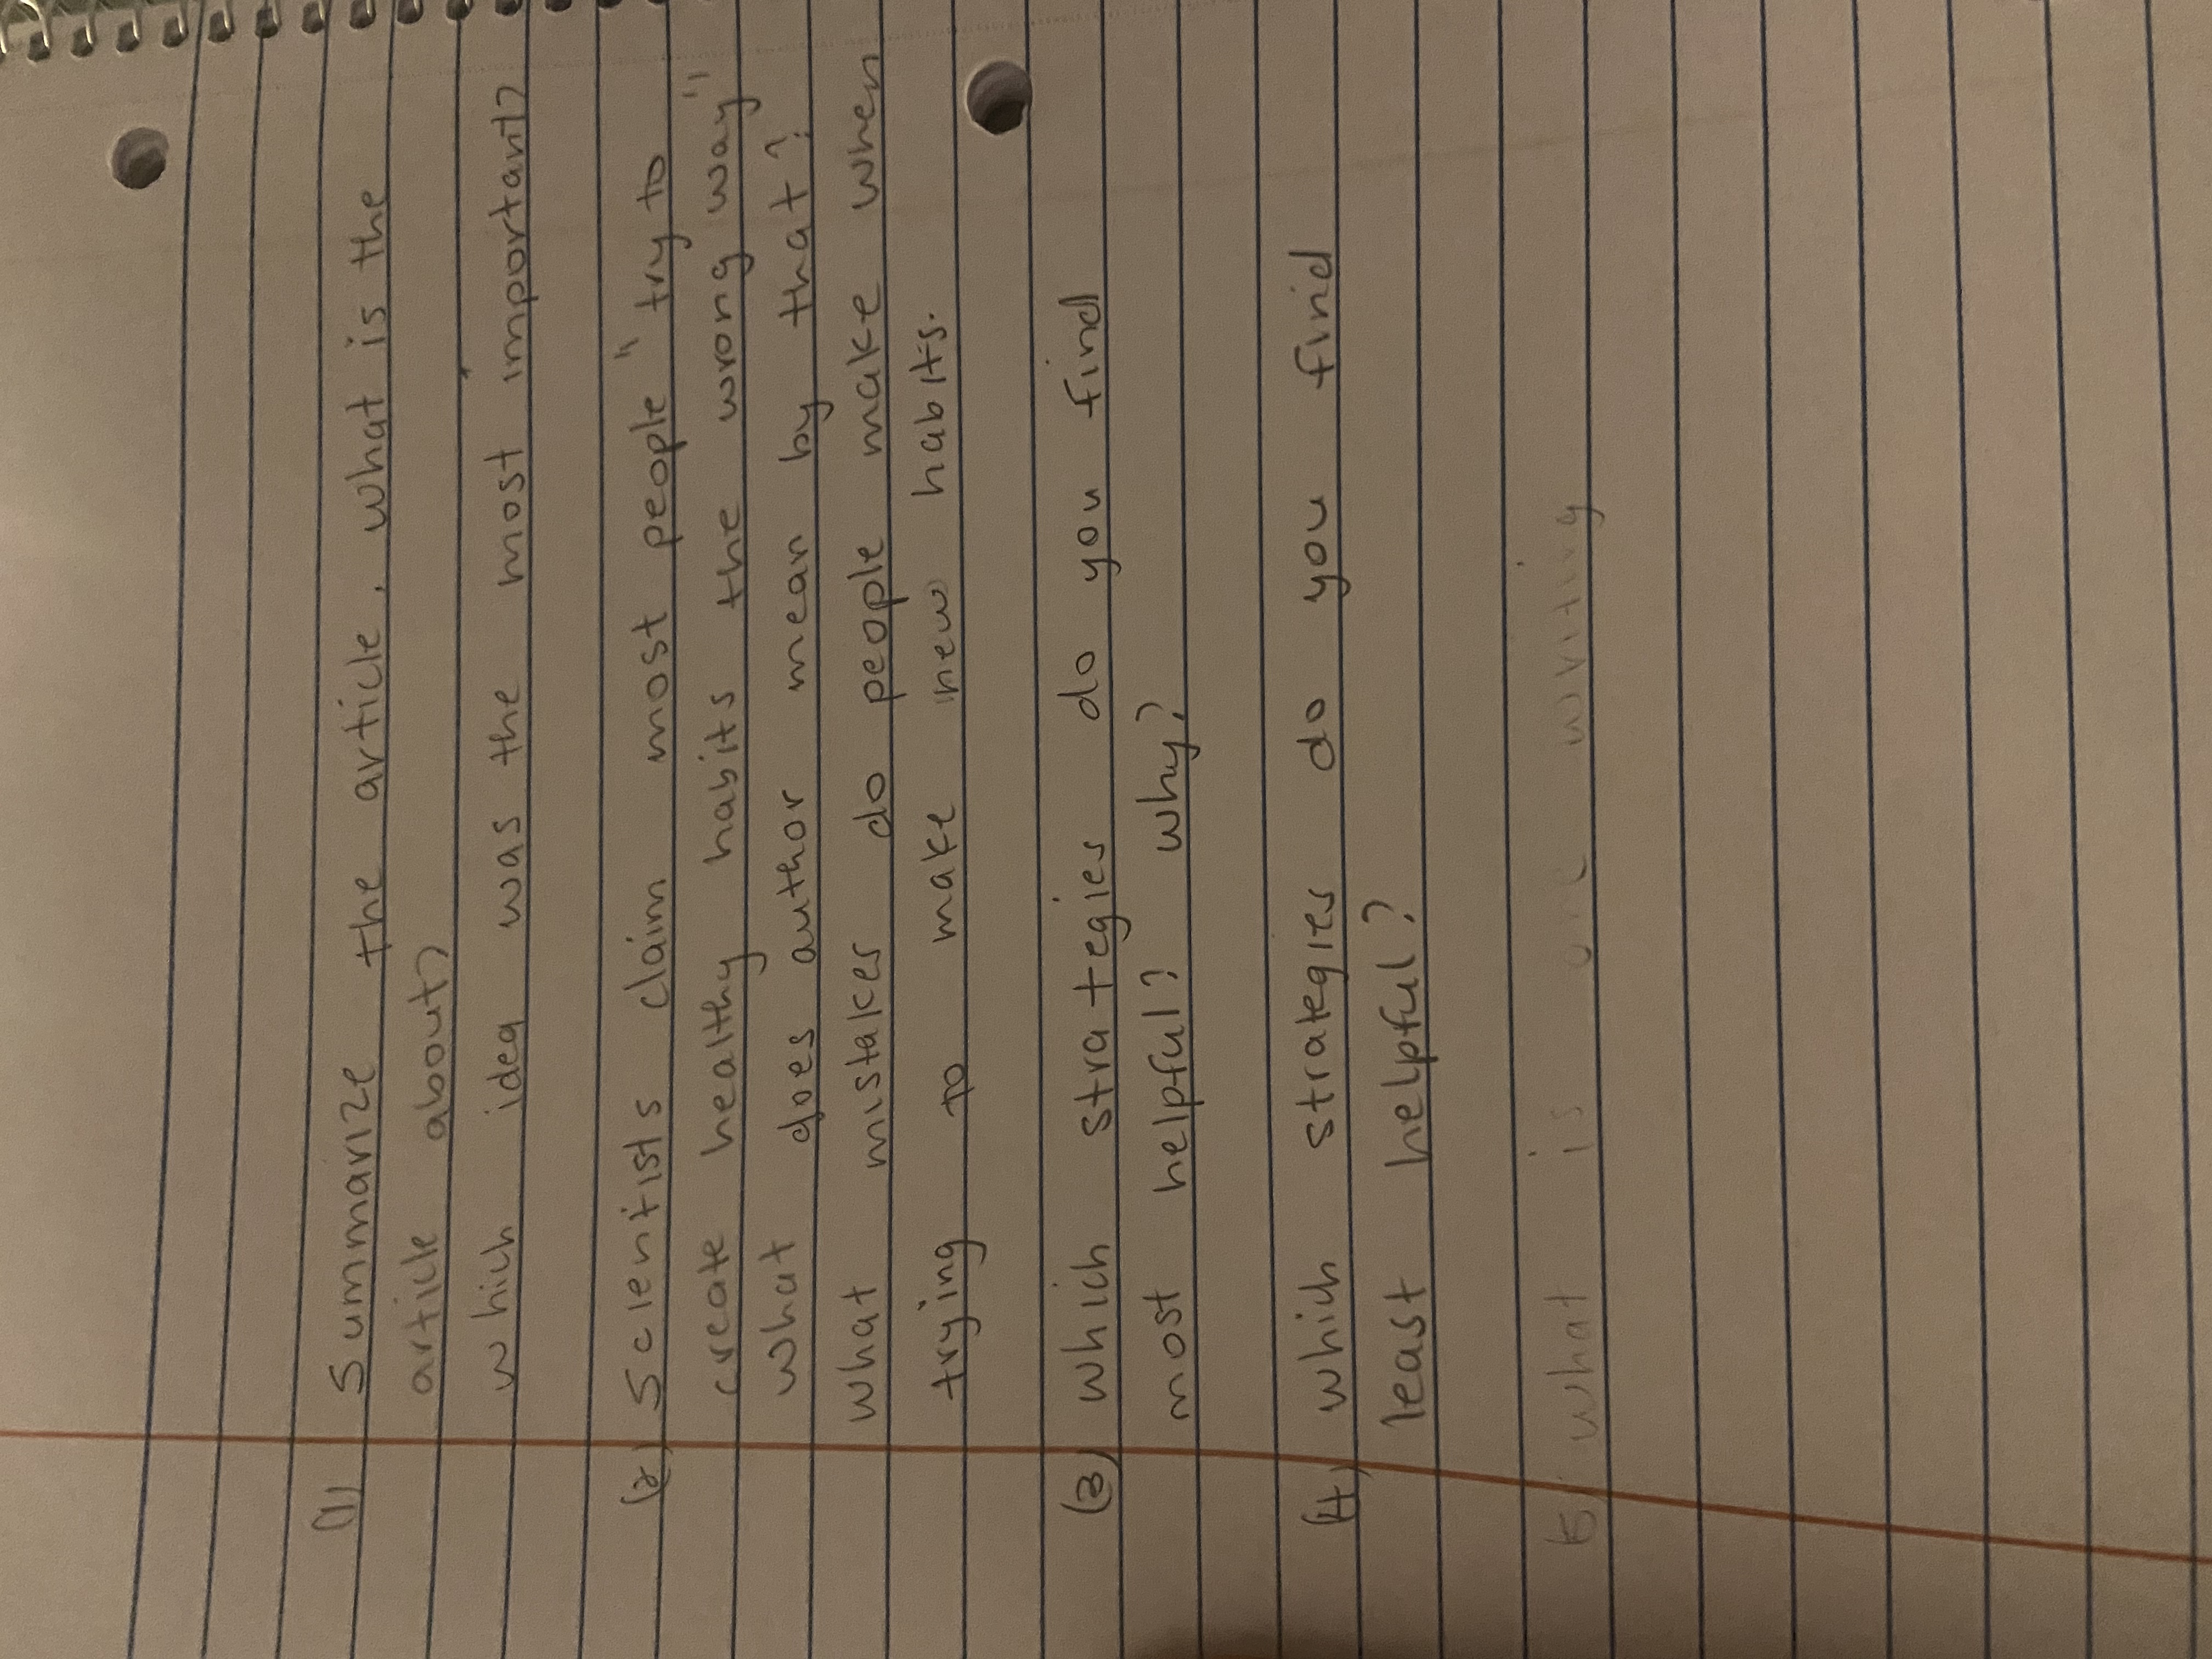 (1) Summarize the article, what is the
article about?
which idea was the most important?
(2) Scientists claim most people "try to
create healthy habits the wrong way"
what does author mean by that?
what mistakes do people make when
trying to make new habits.
(3) which strategies do you find
most helpful? why?
(4) which strategies do you find
least helpful?
(5) what is one writing